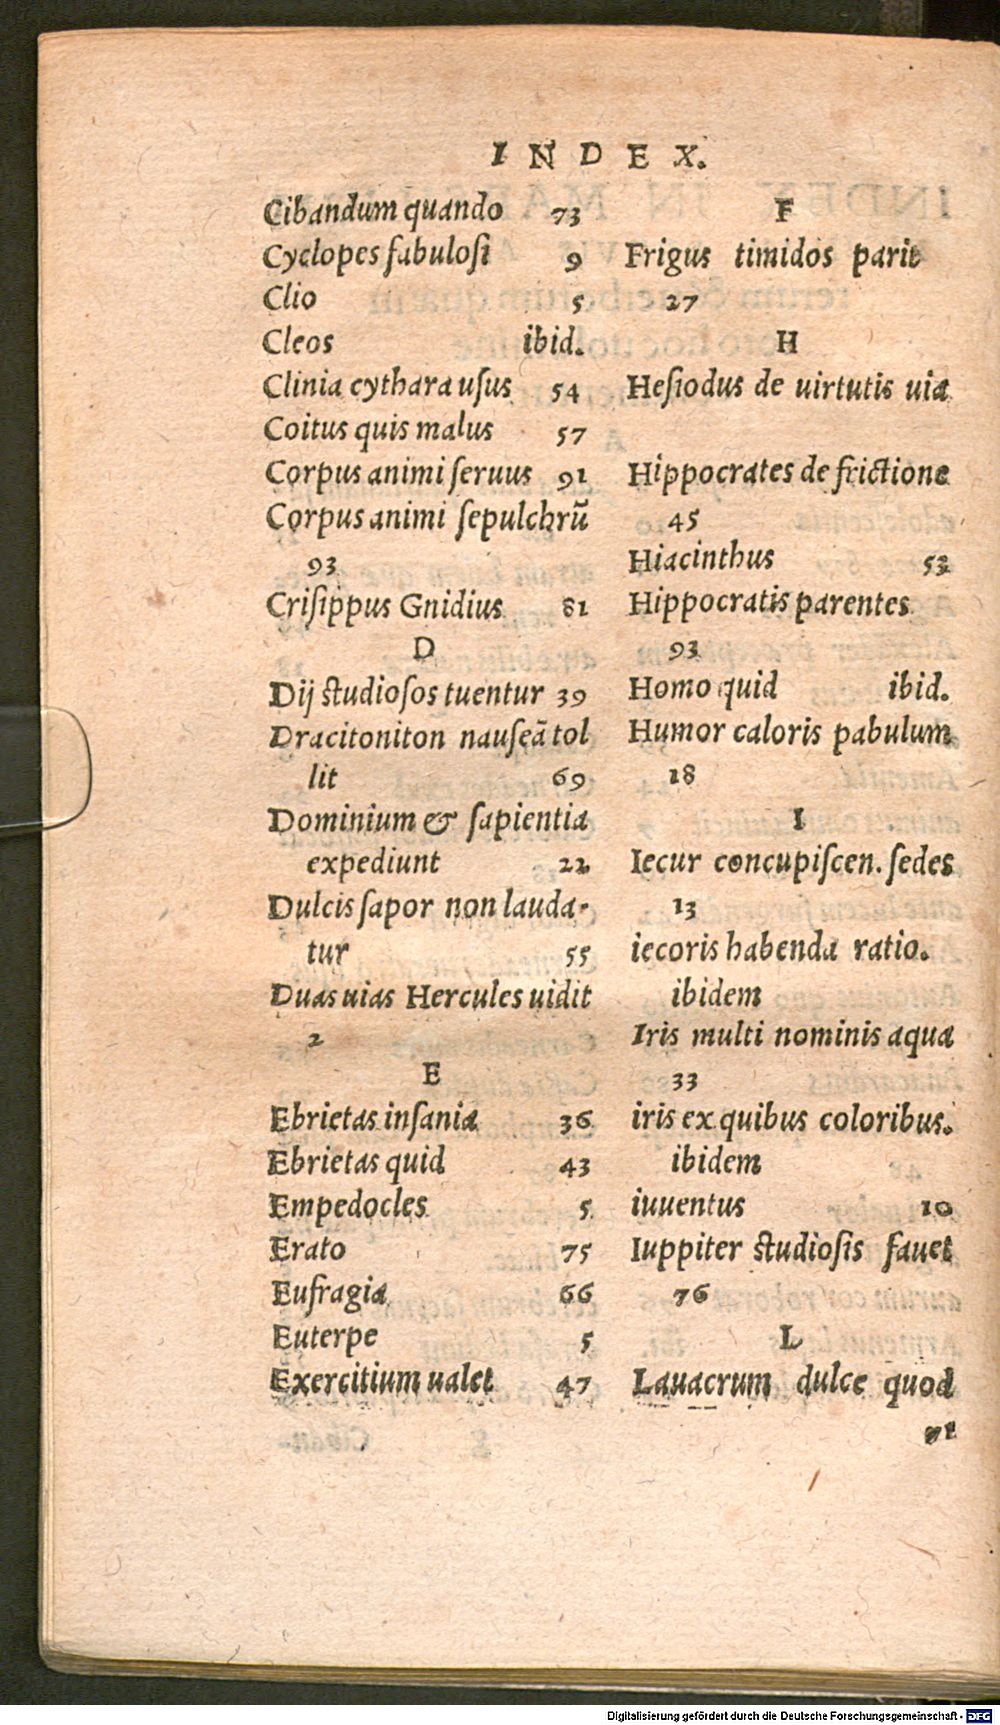 INDEX.
Cibandum quando 73
Cyclopes fabulosi 9
Clio 5
Cleos ibid.
Clinia cythara usus 54
Coitus quis malus 57
Corpus animi seruus 91
Corpus animi sepulchrũ
93
Crisippus Gnidius 81
D
Dij studiosos tuentur 39
Dracitoniton nauseã tol
lit 69
Dominium & sapientia
expediunt 22
Dulcis sapor non lauda-
tur 55
Duas uias Hercules uidit
2
E
Ebrietas insania 36
Ebrietas quid 43
Empedocles 5
Erato 75
Eufragia 66
Euterpe 5
Exercitium ualet 47
F
Frigus timidos parit
27
H
Hesiodus de uirtutis uia
Hippocrates de frictione
45
Hiacinthus 53
Hippocratis parentes
93
Homo quid ibid.
Humor caloris pabulum
18
I
Iecur concupiscen. sedes
13
iecoris habenda ratio.
ibidem
Iris multi nominis aqua
33
iris ex quibus coloribus.
ibidem
iuuentus 10
Iuppiter studiosis fauet
76
L
Lauacrum dulce quod
Digitalisierung gefördert durch die Deutsche Forschungsgemeinschaft - DFG